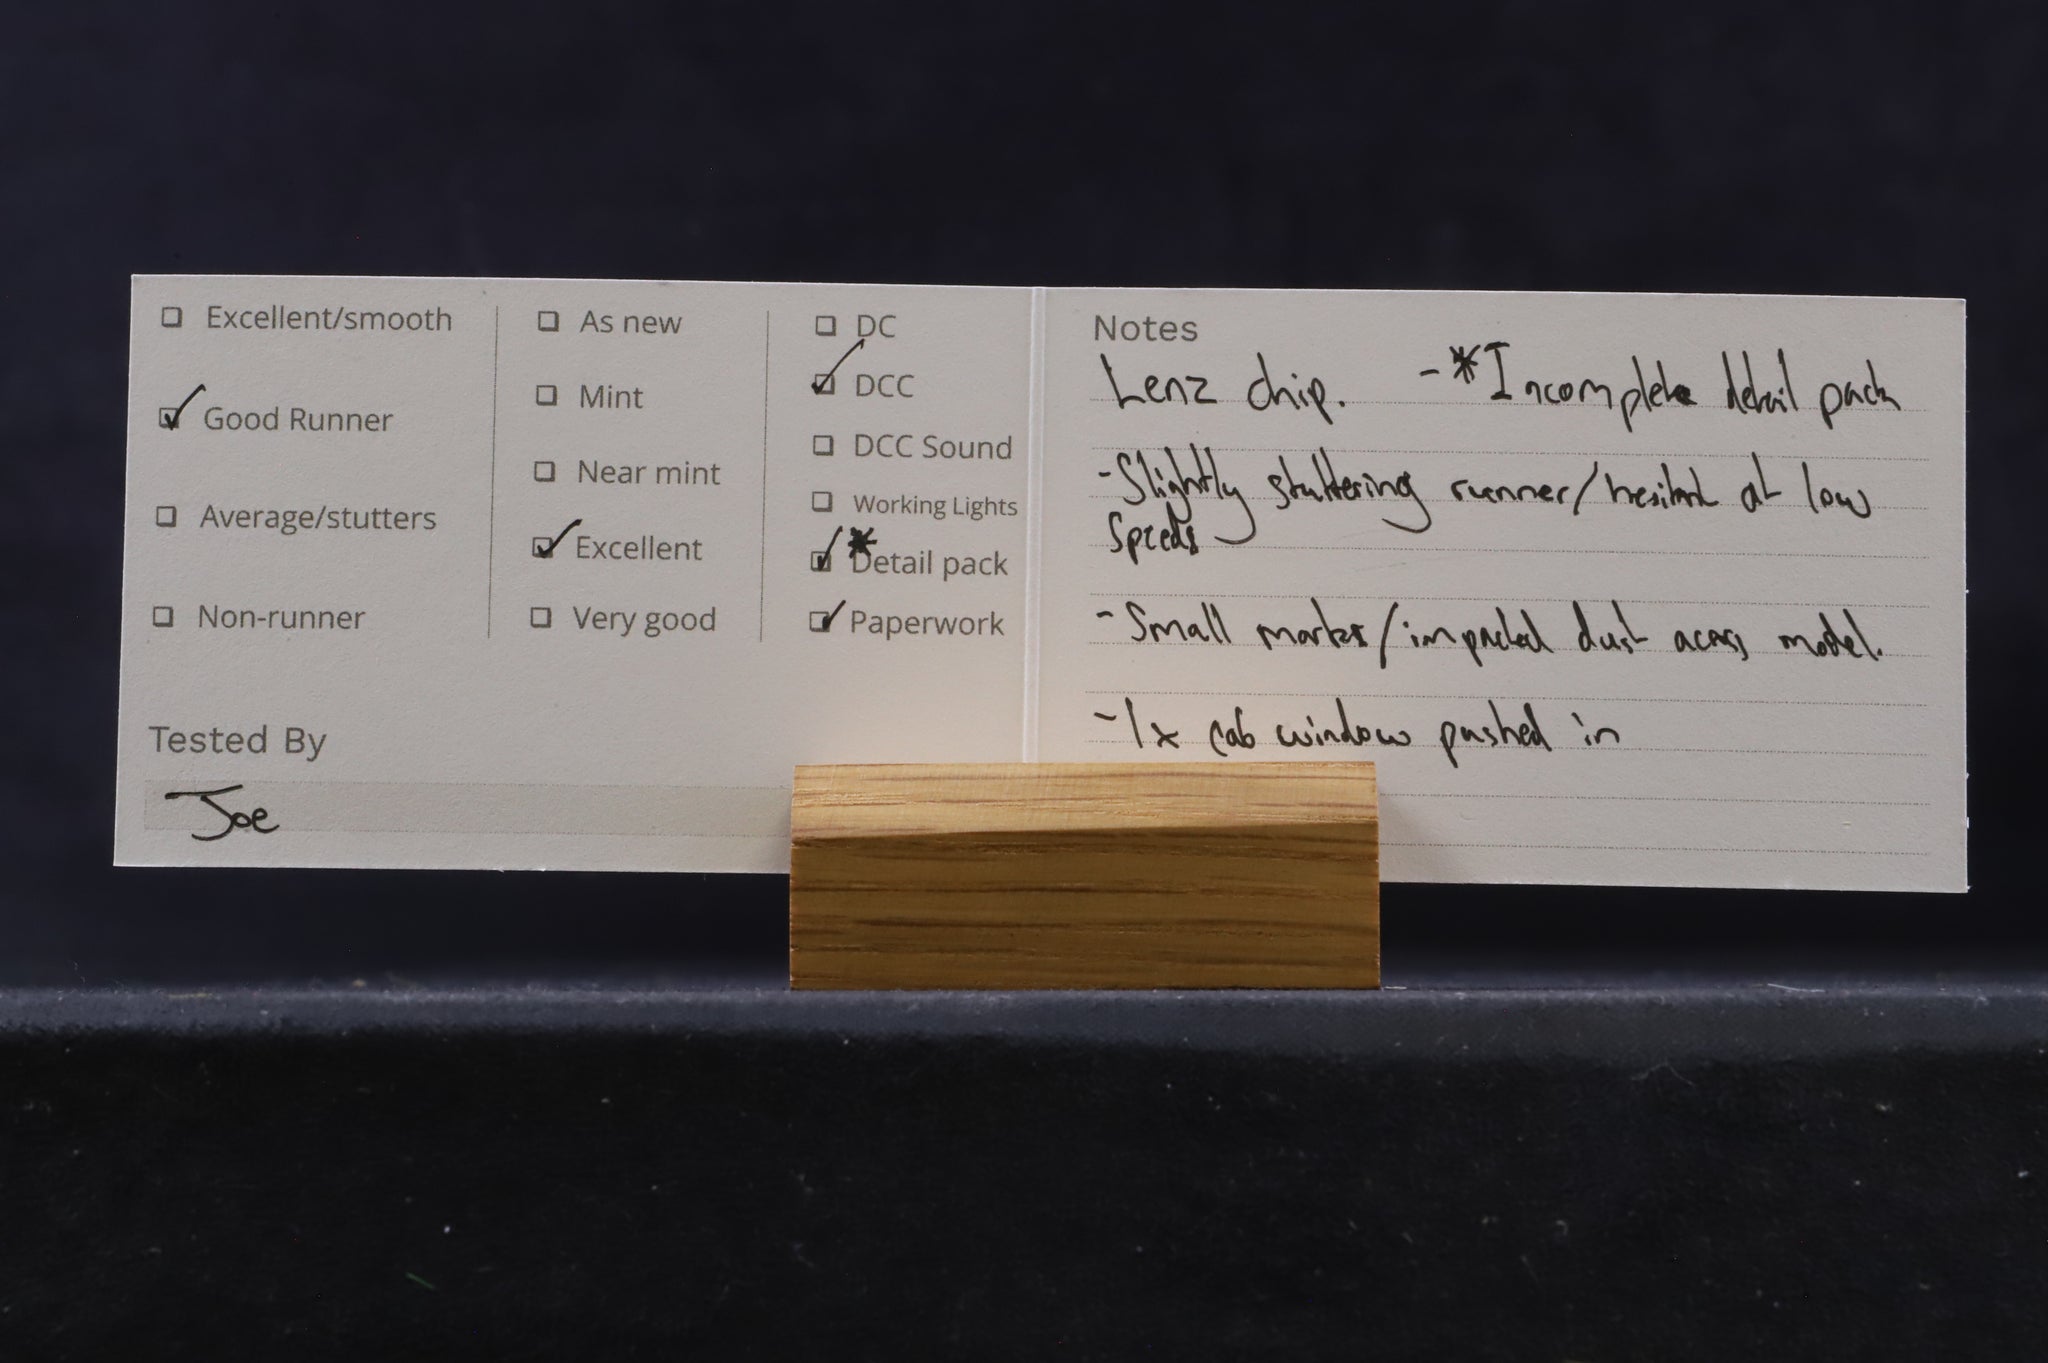 Excellent/smooth
Good Runner
Average/stutters
Non-runner
As new
Mint
Near mint
Excellent
Very good
DC
DCC
DCC Sound
Working Lights
*Detail pack
Paperwork
Tested By
Joe
Notes
Lenz chip. -*Incomplete detail pack
-Slightly stuttering runner/hesitant at low
speeds
-Small marks/impacted dust across model.
-1x cab window pushed in